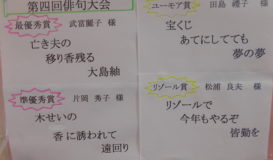 第四回俳句大会
最優秀賞 武富麗子 様
亡き夫の
移り香残る
大島紬
準優秀賞 片岡 秀子 様
木せいの
香に誘われて
遠回り
ユーモア賞 田島 禮子 様
宝くじ
あてにしてても
夢の夢
リゾール賞 松浦 良夫 様
リゾールで
今年もやるぞ
皆勤を